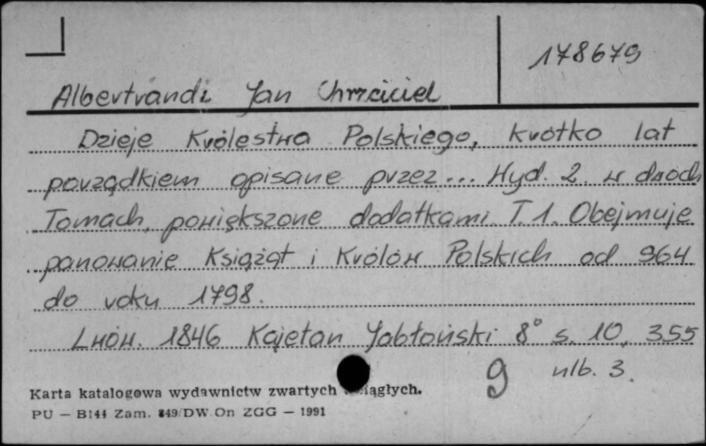 178679
Albertrandi Jan Chrzciciel
Dzieje Królestwa Polskiego, krótko lat
porządkiem opisane przez... Wyd. 2. w dwóch
Tomach, powiększone dodatkami. T. 1. Obejmuje
panowanie Książąt i Królów Polskich od 964
do roku 1798.
Lwów. 1846 Kajetan Jabłoński 8° s. 10, 355
nlb. 3.
9
Karta katalogowa wydawnictw zwartych ciągłych.
PU — B144 Zam. 849/DW On ZGG — 1991